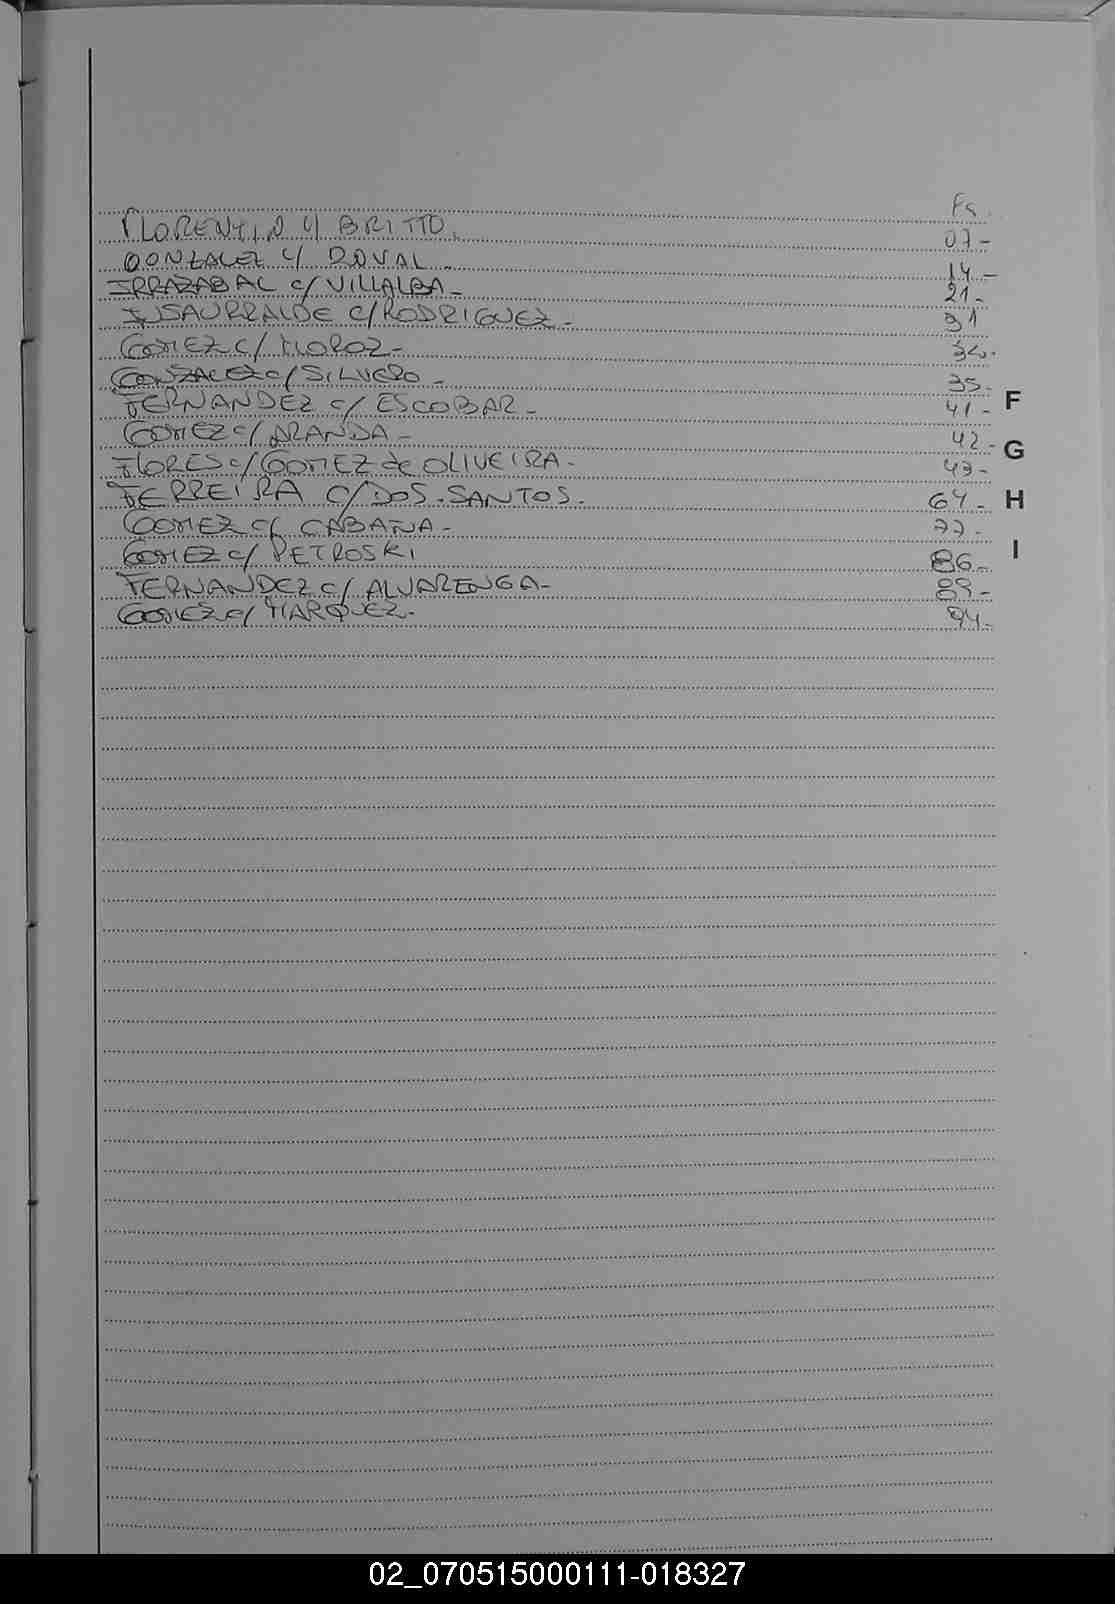 Fs.
FLORENTIN c/ BRITTO. 07-
GONZALEZ c/ DOVAL - 14-
IRRAZABAL c/ VILLALBA - 21-
INSAURRALDE c/ RODRIGUEZ - 31
GOMEZ c/ MOROZ -
GONZALEZ c/ SILVERO - 35-
FERNANDEZ c/ ESCOBAR - 41-
F
GOMEZ c/ ARANDA - 42-
G
FLORES c/ GOMEZ de OLIVEIRA - 43-
FERREIRA c/ DOS.SANTOS. 64-
H
GOMEZ c/ CABAÑA - 77-
GOMEZ c/ PETROSKI 86-
I
FERNANDEZ c/ ALVARENGA - 89-
GOMEZ c/ MARQUEZ - 94-
02_070515000111-018327